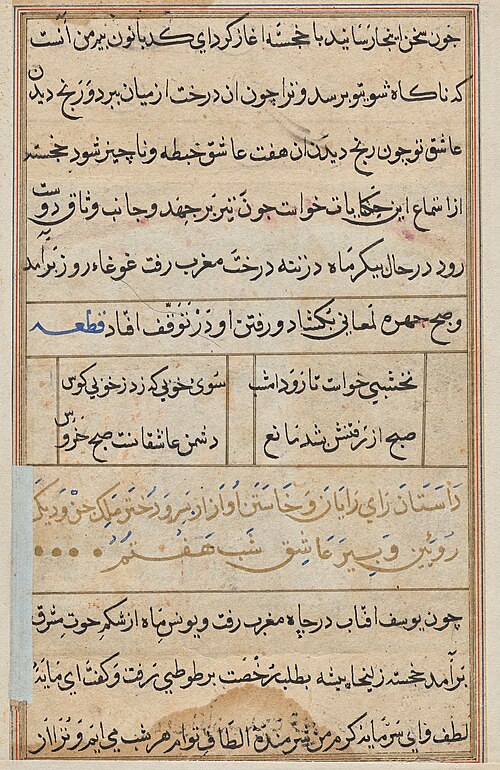 چون سخن اینجا رسانید با خجسته اغاز کرد ای کدبانو نیر من آنست
که ناکاه شوی تو برسد و ترا چون ان درخت از میان ببرد و رنج دیدن
عاشق تو چون رنج دیدن ان هفت عاشق خبطه و ناچیز شود خجسته
از استماع این حکایات خواست چون تیر بر جهد و جانب وثاق دوست
رود در حال پیکر ماه در زتنه درخت مغرب رفت غوغاء روز برآمد
و صبح چهره لمعانی بکشاد و رفتن او در توقف افتاد قطعه
نخشبی خواست تا رود امشب سوی خوبی که زد ز خوبی کوس
صبح از رفتنش شد مانع دشمن عاشقانست صبح خروس
داستان رای رایان و خاستن آواز از سرود دختر ملک جن و دیک
روئین و پسر عاشق شب هفتم
چون یوسف افتاب در چاه مغرب رفت و یونس ماه از شکم حوت مشرق
برآمد خجسته زلیخا پیشه بطلب رخصت بر طوطی رفت و کفت ای مایهٔ
لطف و ای سرمایه کرم من شرمندهٔ الطاف توام هر شب می ایم و ترا از